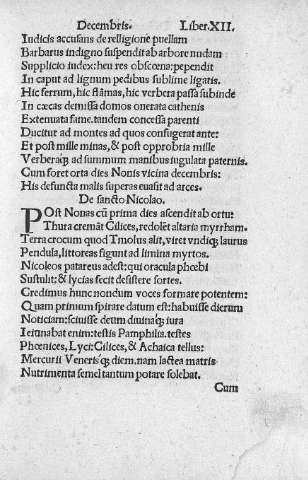 Decembris. Liber.XII.
Indicis accusans de relligione puellam
Barbarus indigno suspendit ab arbore nudam
Supplicio iudex: heu res obscœna: pependit
In caput ad lignum pedibus sublime ligatis.
Hic ferrum, hic flāmas, hic verbera passa subinde
In cæcas demissa domos onerata cathenis
Extenuata fame. tandem concessa parenti
Ducitur ad montes ad quos confugerat ante:
Et post mille minas, & post opprobria mille
Verberaq; ad summum manibus iugulata paternis.
Cum foret orta dies Nonis vicina decembris:
His defuncta malis superas euasit ad arces.
De sancto Nicolao.
POst Nonas cū prima dies ascendit ab ortu:
Thura cremāt Cilices, redolēt altaria myrrham.
Terra crocum quod Tmolus alit, viret vndiq; laurus
Pendula, littoreas figunt ad limina myrtos.
Nicoleos patareus adest: qui oracula phœbi
Sustulit: & lycias fecit desistere sortes.
Credimus hunc nondum voces formare potentem:
Quam primum spirare datum est: habuisse dierum
Noticiam: sciuisse deum diuinaq; iura
Ieiunabat enim: testis Pamphilia. testes
Phœnices, Lyci: Cilices, & Achaica tellus:
Mercurii Venerisq; diem. nam lactea matris
Nutrimenta semel tantum potare solebat.
Cum